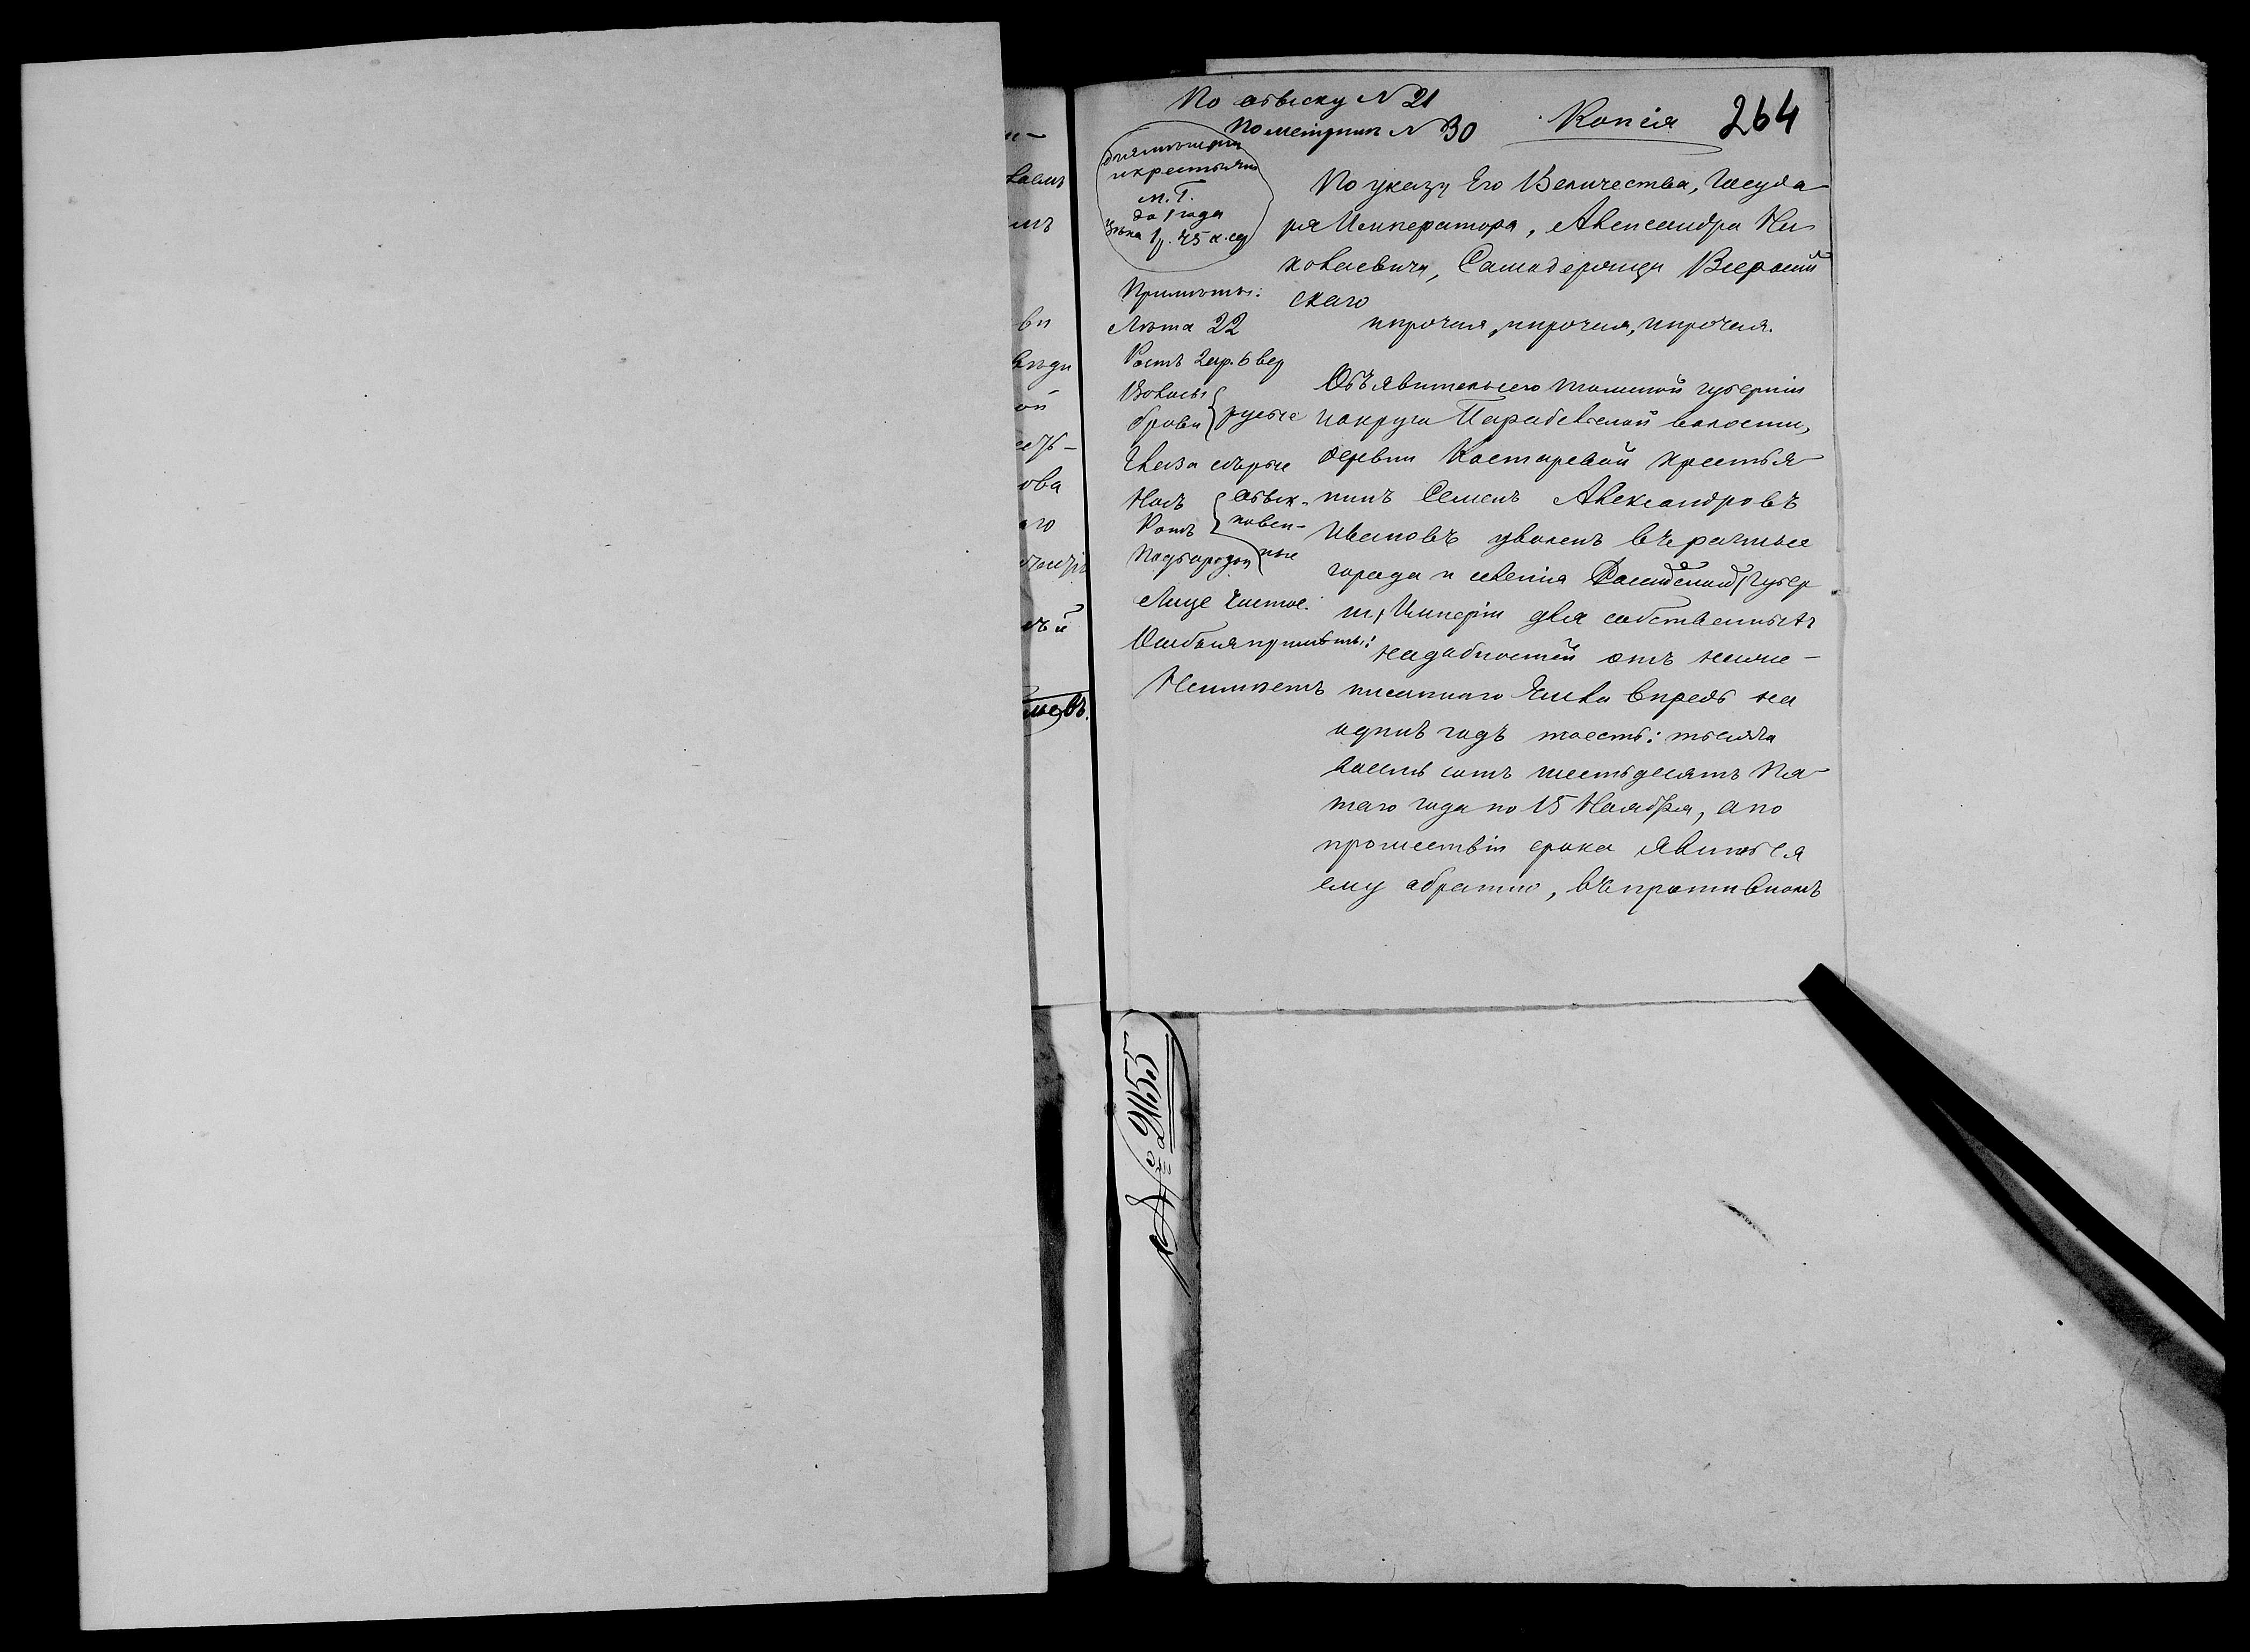 По обыску № 21
По метрик № 30
Копія 264
для мещан
и крестьянъ
М.Г.
до 1 года
Цѣна 1 р. 45 к. сер
По указу Его Величества, Госуда
ря Императора, Александра Ни
колаевича, Самодержца Всероссій
скаго
и прочая, и прочая, и прочая.
Примѣты:
Лѣта 22
Ростъ 2 ар. 6 вер
Волосы
брови } русые
Глаза сѣрые
Носъ
Ротъ
Подбородокъ } обыкновен-
ные
Лице чистое.
Особыя примѣты:
Неимѣетъ
Объявитель сего Томской губерніи
и округа Парабельской волости,
деревни Костаревой крестья
нинъ Семенъ Александровъ
Ивановъ уволенъ въ разные
города и селенія Россійской губер
ніи, Имперіи для собственныхъ
надобностей отъ ниже-
писаннаго числа впредь на
одинъ годъ тоесть: тысяча
восемь сотъ шестьдесятъ Пя-
таго года по 15 Ноября, а по
прошествіи срока явиться
ему обратно, въ противномъ
№ 2155
-
ва
ой
ова
аго
въ.